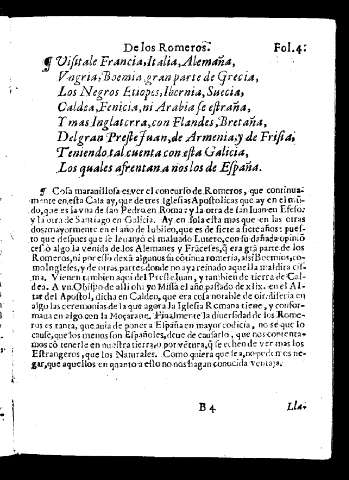 De los Romeros. Fol. 4.
¶ Visitale Francia, Italia, Alemaña,
Vngria, Boemia, gran parte de Grecia,
Los Negros Etiopes, Ibernia, Suecia,
Caldea, Fenicia, ni Arabia se estraña,
Y mas Inglaterra, con Flandes, Bretaña,
Del gran Preste Juan, de Armenia, y de Frisia,
Teniendo tal cuenta con esta Galicia,
Los quales afrentan a ños los de España.
¶ Cosa marauillosa es ver el concurso de Romeros, que continua-
mente en esta Casa ay, que de tres Iglesias Apostolicas que ay en el mũ-
do, que es la vna de san Pedro en Roma: y la otra de san Iuan en Efeso:
y la otra de Santiago en Galicia. Ay en sola esta mas que en las otras
dos: mayormente en el año de Iubileo, que es de siete a siete años: pues-
to que despues que se leuantó el maluado Lutero, con su dañada opiniõ
cessó algo la venida de los Alemanes y Frãceses, q̃ era grã parte de los
Romeros, ni por esso dexã algunos su cõtinua romeria, assi Boemios, co-
mo Ingleses, y de otras partes, donde no aya reinado aquella maldita cis-
ma. Vienen tambien aqui del Preste Iuan, y tambien de tierra de Cal-
dea. A vn Obispo de alli oh yo Missa el año passado de xlix. en el Al-
tar del Apostol, dicha en Caldeo, que era cosa notable de oir: diferia en
algo las ceremonias de la que agora la Iglesia Romana tiene, y confor-
maua en algo con la Moçaraue. Finalmente la diuersidad de los Rome-
ros es tanta, que auia de poner a España en mayor codicia, no se que lo
cause, que los menos son Españoles, deue de causarlo, que nos contenta-
mos cõ tenerle en nuestra tierra, o por vẽtura, q̃ se echen de ver mas los
Estrangeros, que los Naturales. Como quiera que sea, no podemos ne-
gar, que aquellos en quanto a ello no nos hagan conocida ventaja.
B 4 Lla-